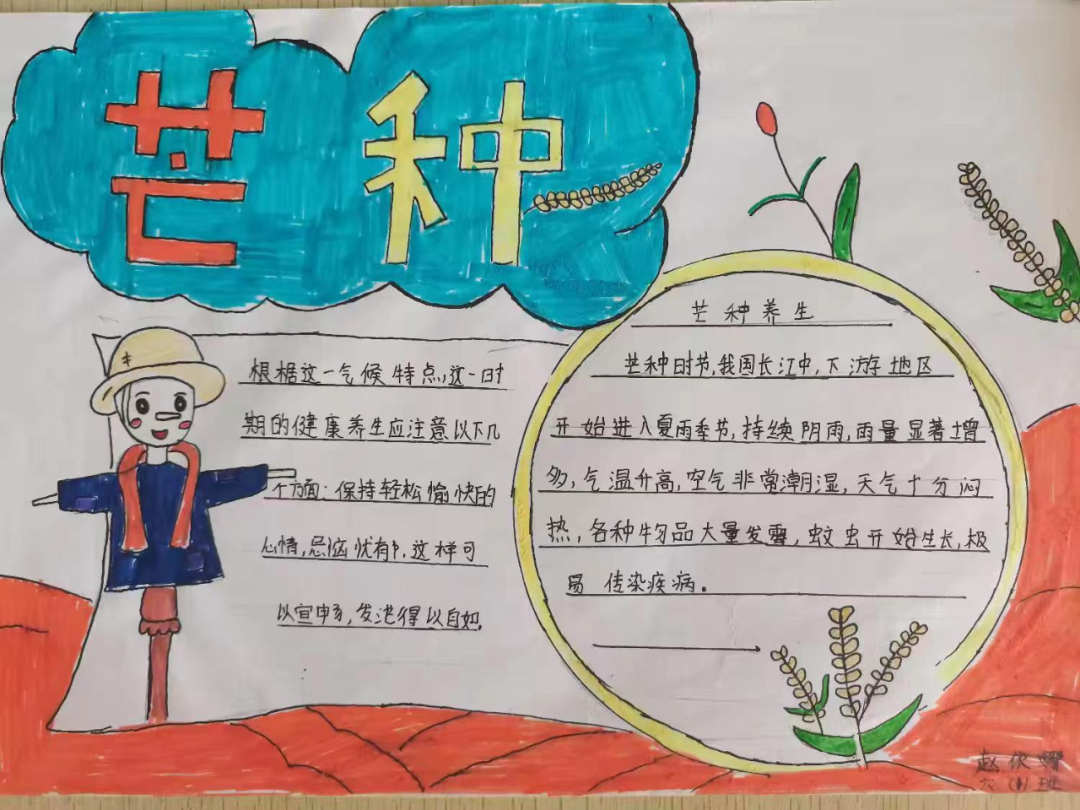 芒种
根据这一气候特点,这一时
期的健康养生应注意以下几
个方面:保持轻松愉快的
心情,忌恼忧郁,这样可
以宣畅,发泄得以自如.
芒种养生
芒种时节,我国长江中,下游地区
开始进入夏雨季节,持续阴雨,雨量显著增
多,气温升高,空气非常潮湿,天气十分闷
热,各种物品大量发霉,蚊虫开始生长,极
易传染疾病。
六(1)班